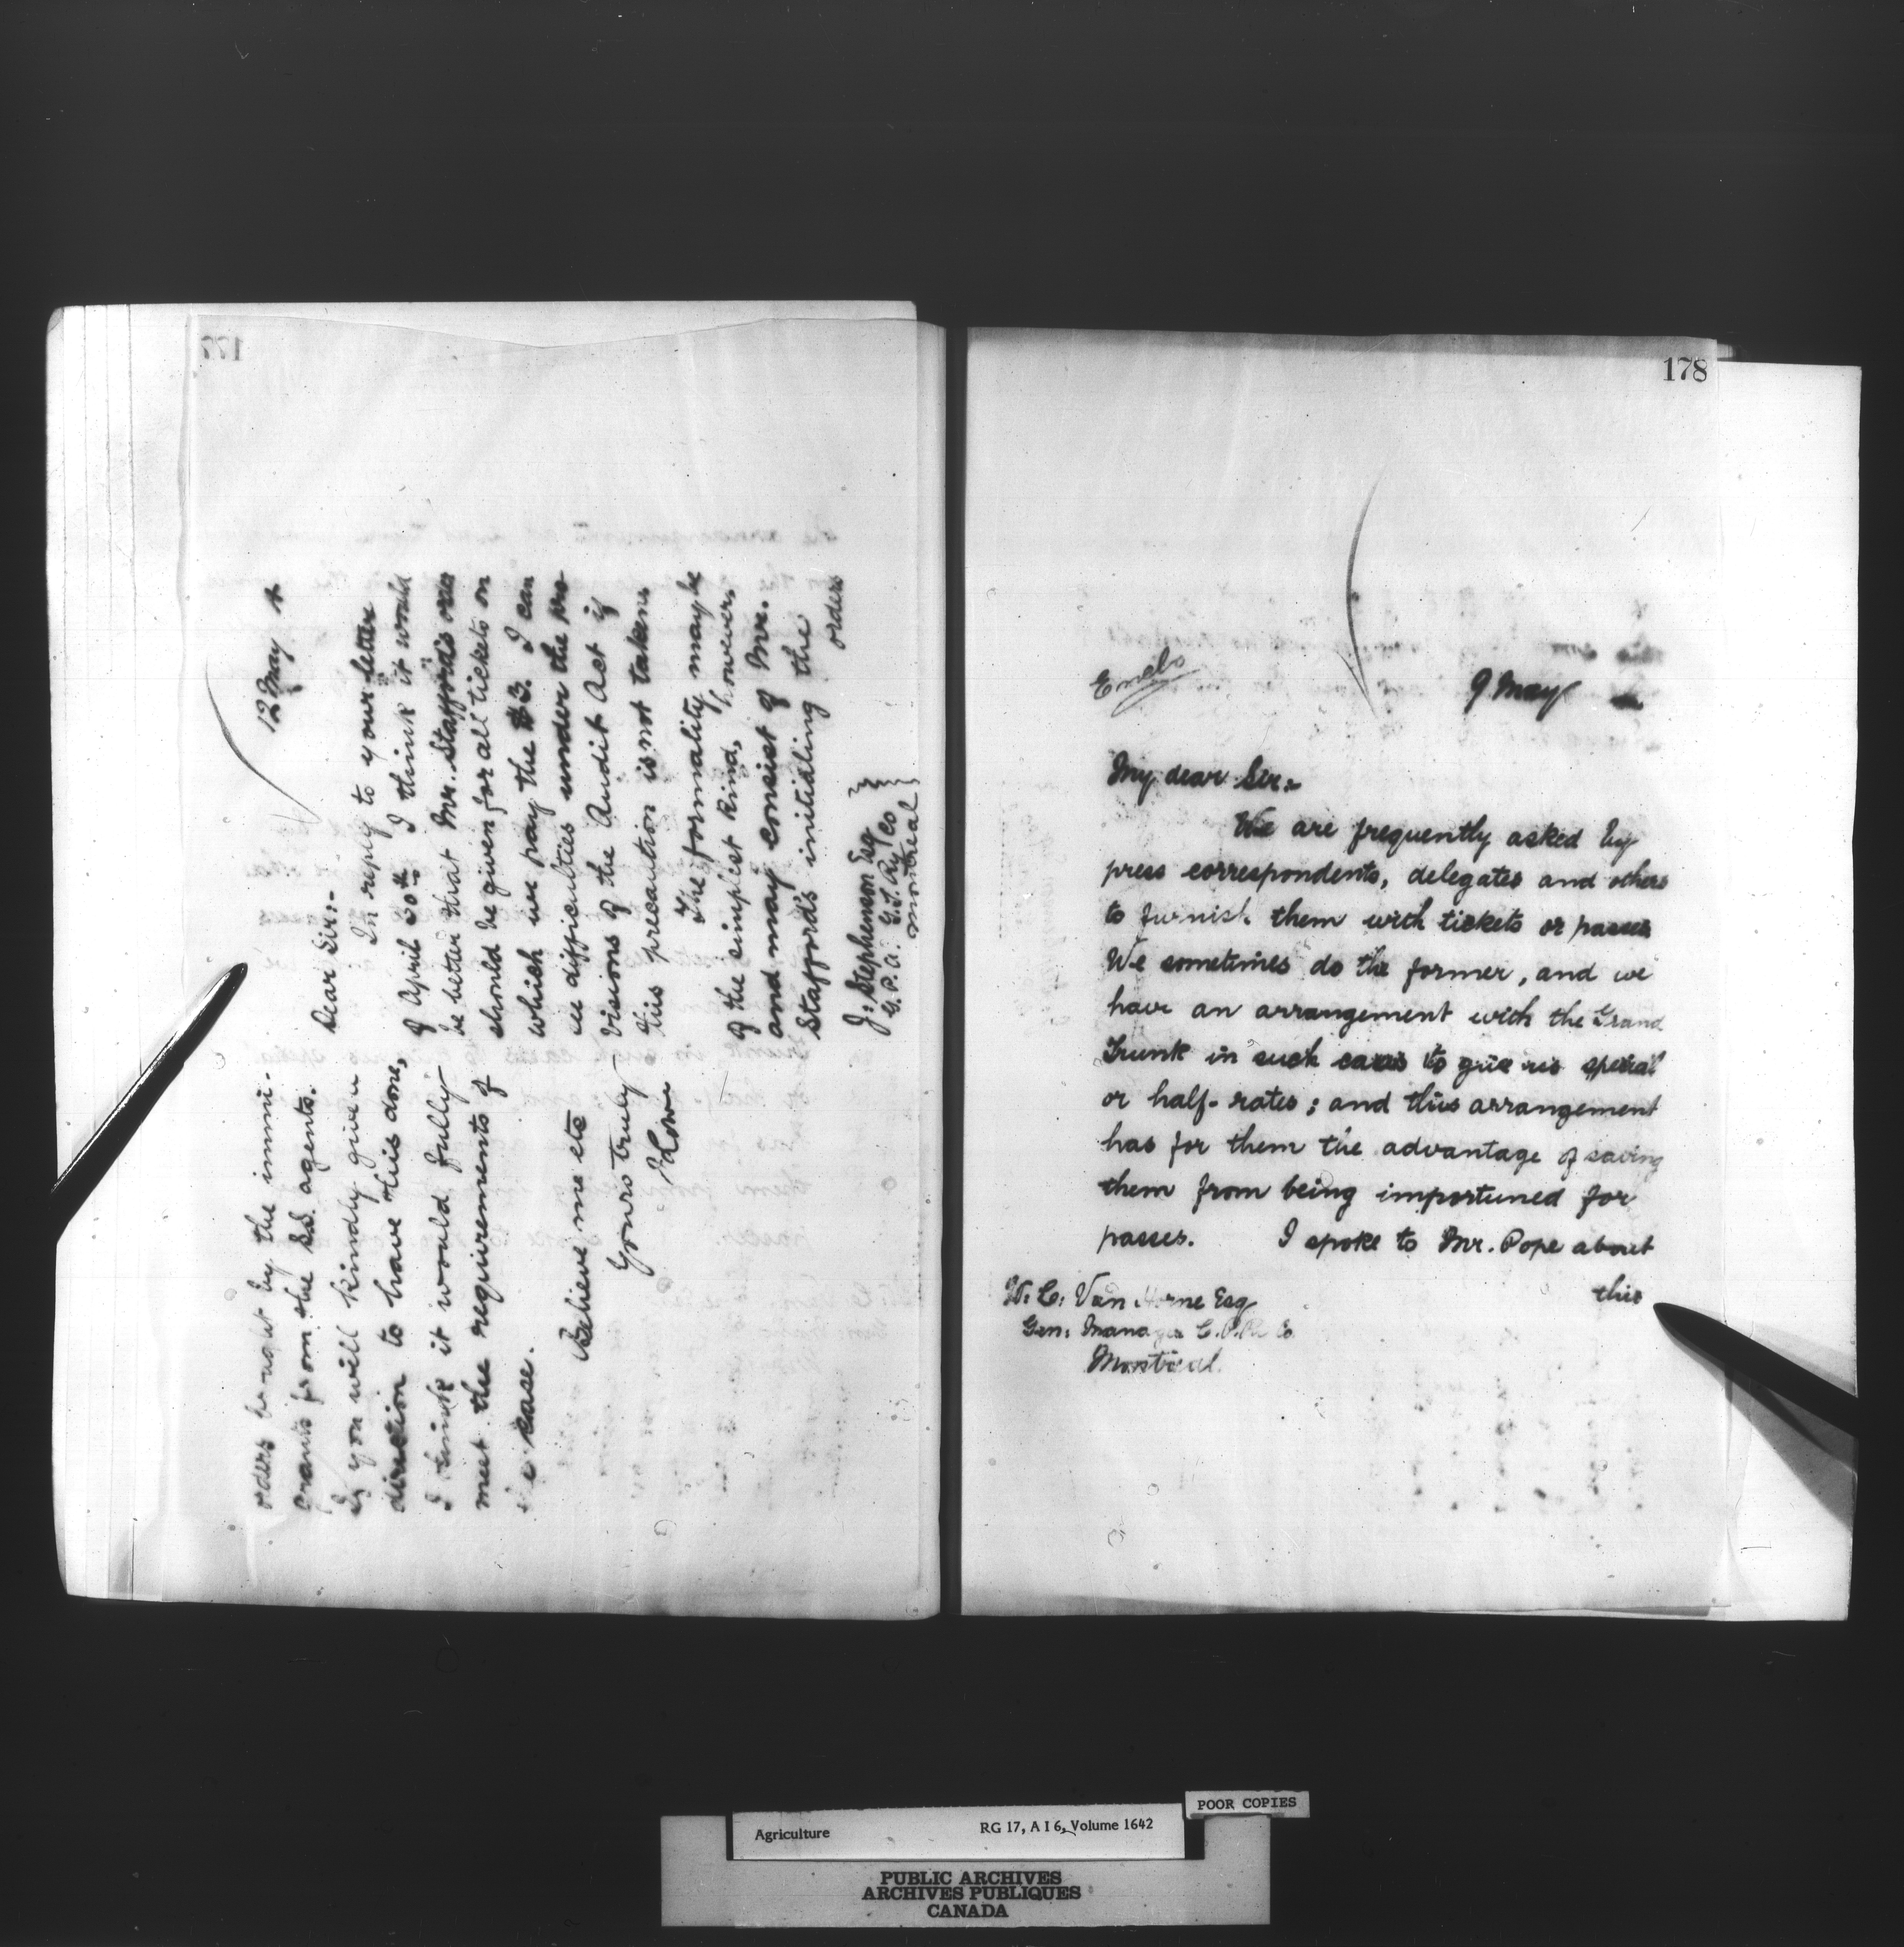 177
12 May
Dear Sir:-
In reply to your letter
of April 30th I think it would
be better that Mr. Stafford's
should be given for all tickets on
which we pay the $3. I can
see difficulties under the pro-
visions of the Audit Act if
this precaution is not taken.
The formality may be
of the simplest kind, however,
and may consist of Mr.
Stafford's initialling the
orders
J: Stephenson Esq
G. P. A. G.T. Ry Co
Montreal
orders brought by the immi-
grants from the S.S. agents.
If you will kindly given
direction to have this done,
I think it would fully
meet the requirements of
the case.
Believe me etc
Yours truly
J Lowe
178
Enclo
9 May
My dear Sir:-
We are frequently asked by
press correspondents, delegates and others
to furnish them with tickets or passes
We sometimes do the former, and we
have an arrangement with the Grand
Trunk in such cases to give us special
or half-rates; and this arrangement
has for them the advantage of saving
them from being importuned for
passes. I spoke to Mr. Pope about
this
W. C. Van Horne Esq
Gen: Manager C.P.R. Co
Montreal
POOR COPIES
Agriculture RG 17, A I 6, Volume 1642
PUBLIC ARCHIVES
ARCHIVES PUBLIQUES
CANADA